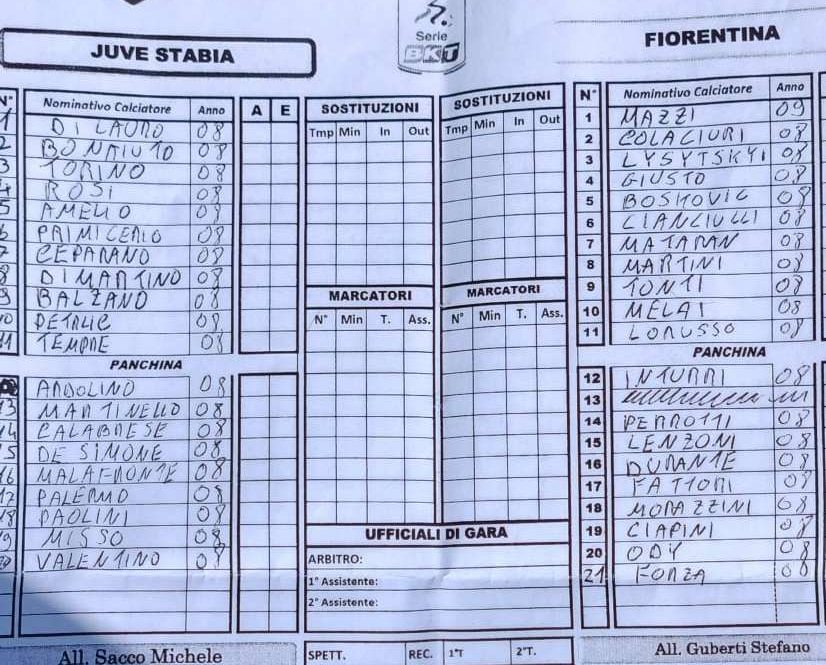 Serie
BKT
JUVE STABIA
FIORENTINA
N° Nominativo Calciatore Anno A E
1 DI LAURO 08
2 BONAIUTO 08
3 TORINO 08
4 ROSI 08
5 AMELIO 08
6 PRIMICERIO 08
7 CEPARANO 08
8 DI MARTINO 08
9 BALZANO 08
10 PETALIC 08
11 TEMPRE 08
PANCHINA
ARDOLINO 08
13 MARTINELLO 08
14 CALABRESE 08
15 DE SIMONE 08
16 MALAFRONTE 08
17 PALERMO 08
18 PAOLINI 08
19 MISSO 08
20 VALENTINO 08
All. Sacco Michele
SOSTITUZIONI SOSTITUZIONI
Tmp Min In Out Tmp Min In Out
MARCATORI MARCATORI
N° Min T. Ass. N° Min T. Ass.
UFFICIALI DI GARA
ARBITRO:
1° Assistente:
2° Assistente:
SPETT. REC. 1°T 2°T.
N° Nominativo Calciatore Anno
1 MAZZI 09
2 COLACIURI 08
3 LYSYTSKYI 08
4 GIUSTO 08
5 BOSKOVIC 08
6 CIANCIULLI 08
7 MATARAN 08
8 MARTINI 08
9 TONTI 08
10 MELAI 08
11 LORUSSO 08
PANCHINA
12 INTURRI 08
13
14 PERROTTI 08
15 LENZONI 08
16 DURANTE 08
17 FATTORI 08
18 MORAZZINI 08
19 CIAPINI 08
20 ODY 08
21 FORZA 08
All. Guberti Stefano